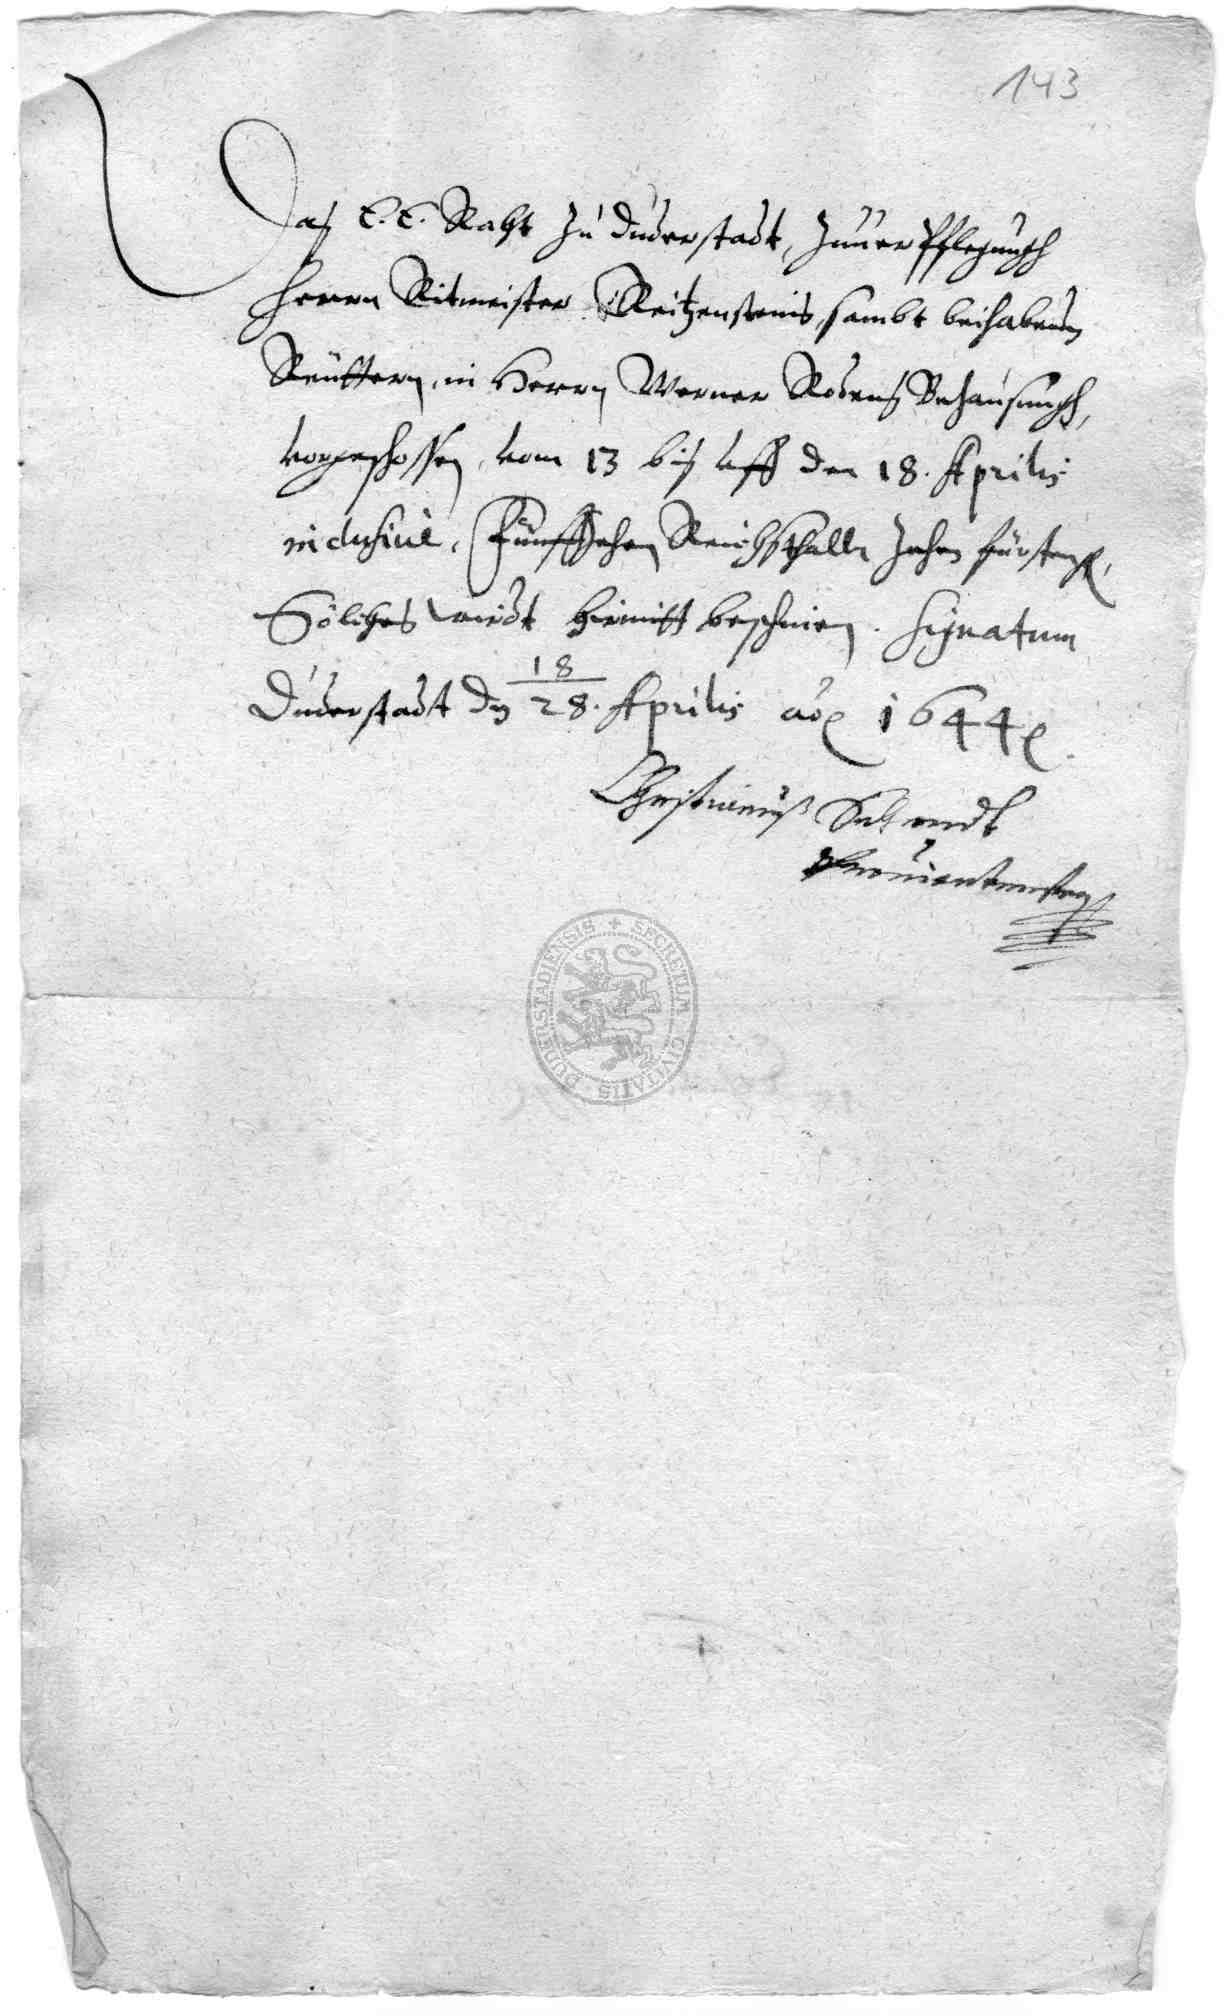 143
Daß E. E. Raht zu Duderstadt, zu verpflegungh
Herrn Ritmeister Reitzensteins, sambt beihabenden
Reüttern, in Herrn Werner Rodens Behausungh,
vorgeschossen, vom 13 biß vff den 18. Aprilis
inclusivè, Fünffzehen Reichsthaller zehen fürsten
Sölches wirdt hirmitt bescheinen. Signatum
Duderstadt den 18/28. Aprilis ao 1644
Christianus
SECRETUM CIVITATIS DUDERSTADIENSIS